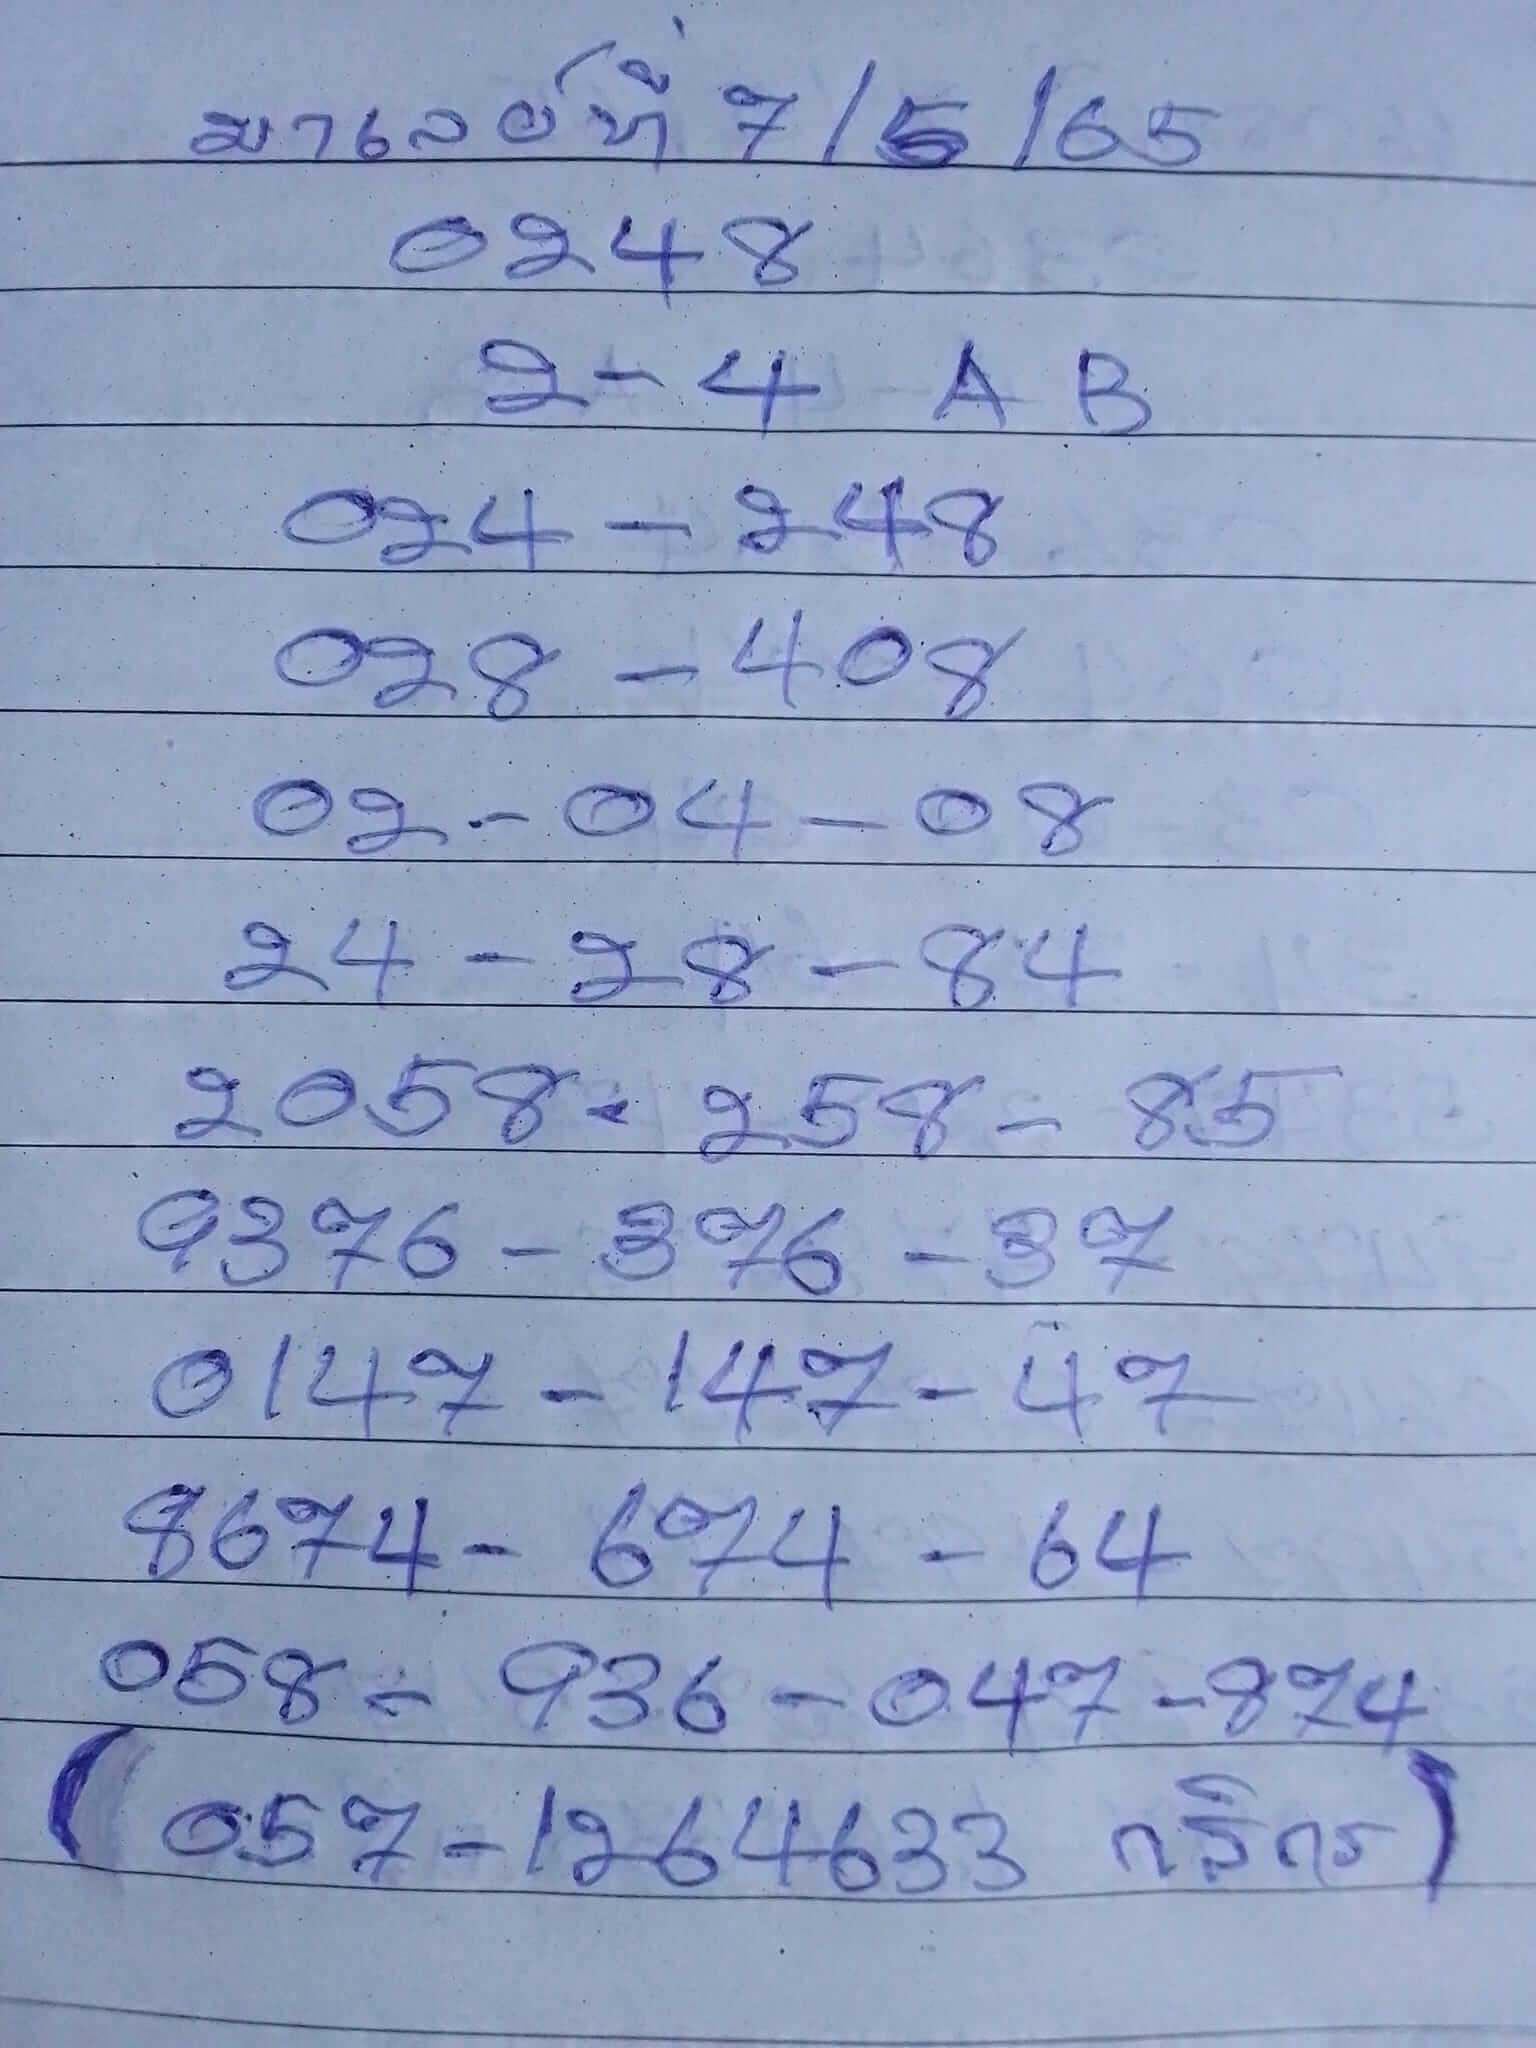 มาเลย์ที่ 7/5/65
0248
2-4 A B
024-248
028-408
02-04-08
24-28-84
2058-258-85
9376-376-37
0147-147-47
8674-674-64
058-936-047-874
(057-1264633 กสิกร)